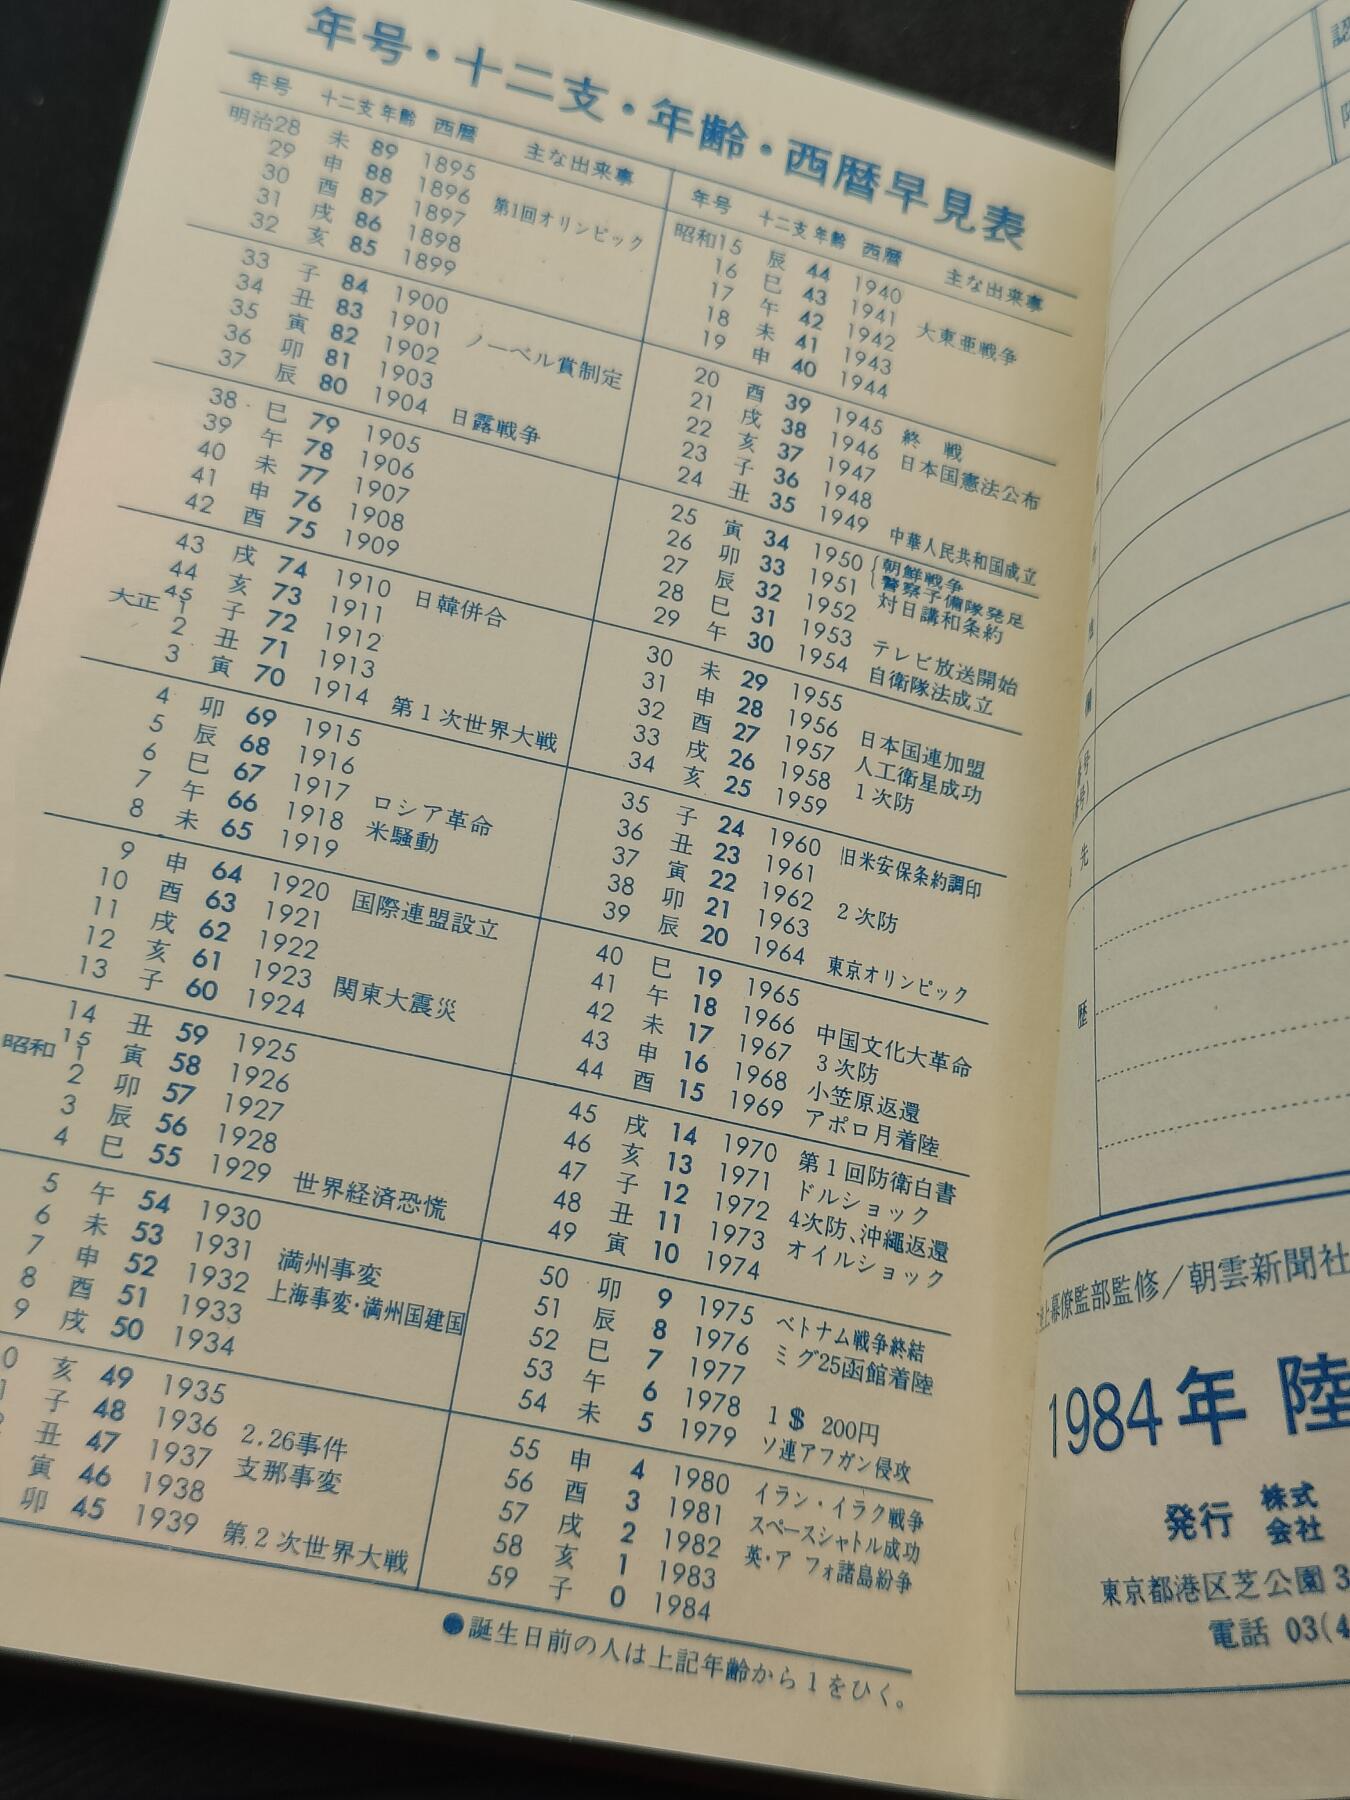 年号・十二支・年齢・西暦早見表
年号 十二支 年齢 西暦 主な出来事
明治28 未 89 1895
29 申 88 1896 第1回オリンピック
30 酉 87 1897
31 戌 86 1898
32 亥 85 1899
33 子 84 1900
34 丑 83 1901 ノーベル賞制定
35 寅 82 1902
36 卯 81 1903
37 辰 80 1904 日露戦争
38 巳 79 1905
39 午 78 1906
40 未 77 1907
41 申 76 1908
42 酉 75 1909
43 戌 74 1910 日韓併合
44 亥 73 1911
大正 45 1 子 72 1912
2 丑 71 1913
3 寅 70 1914 第1次世界大戦
4 卯 69 1915
5 辰 68 1916
6 巳 67 1917 ロシア革命
7 午 66 1918 米騒動
8 未 65 1919
9 申 64 1920 国際連盟設立
10 酉 63 1921
11 戌 62 1922
12 亥 61 1923 関東大震災
13 子 60 1924
14 丑 59 1925
昭和 15 1 寅 58 1926
2 卯 57 1927
3 辰 56 1928
4 巳 55 1929 世界経済恐慌
5 午 54 1930
6 未 53 1931 満州事変
7 申 52 1932 上海事変・満州国建国
8 酉 51 1933
9 戌 50 1934
0 亥 49 1935
1 子 48 1936 2.26事件
丑 47 1937 支那事変
寅 46 1938
卯 45 1939 第2次世界大戦
年号 十二支 年齢 西暦 主な出来事
昭和15 辰 44 1940
16 巳 43 1941 大東亜戦争
17 午 42 1942
18 未 41 1943
19 申 40 1944
20 酉 39 1945 終 戦
21 戌 38 1946 日本国憲法公布
22 亥 37 1947
23 子 36 1948
24 丑 35 1949 中華人民共和国成立
25 寅 34 1950 {朝鮮戦争
警察予備隊発足
26 卯 33 1951 対日講和条約
27 辰 32 1952
28 巳 31 1953 テレビ放送開始
29 午 30 1954 自衛隊法成立
30 未 29 1955
31 申 28 1956 日本国連加盟
32 酉 27 1957 人工衛星成功
33 戌 26 1958 1次防
34 亥 25 1959
35 子 24 1960 旧米安保条約調印
36 丑 23 1961
37 寅 22 1962 2次防
38 卯 21 1963
39 辰 20 1964 東京オリンピック
40 巳 19 1965
41 午 18 1966 中国文化大革命
42 未 17 1967 3次防
43 申 16 1968 小笠原返還
44 酉 15 1969 アポロ月着陸
45 戌 14 1970 第1回防衛白書
46 亥 13 1971 ドルショック
47 子 12 1972 4次防、沖縄返還
48 丑 11 1973 オイルショック
49 寅 10 1974
50 卯 9 1975 ベトナム戦争終結
51 辰 8 1976 ミグ25函館着陸
52 巳 7 1977
53 午 6 1978 1$ 200円
54 未 5 1979 ソ連アフガン侵攻
55 申 4 1980 イラン・イラク戦争
56 酉 3 1981 スペースシャトル成功
57 戌 2 1982 英・ア フォ諸島紛争
58 亥 1 1983
59 子 0 1984
●誕生日前の人は上記年齢から1をひく。
先
歴
上幕僚監部監修/朝雲新聞社
1984年 陸
発行 株式
会社
東京都港区芝公園3
電話 03(4